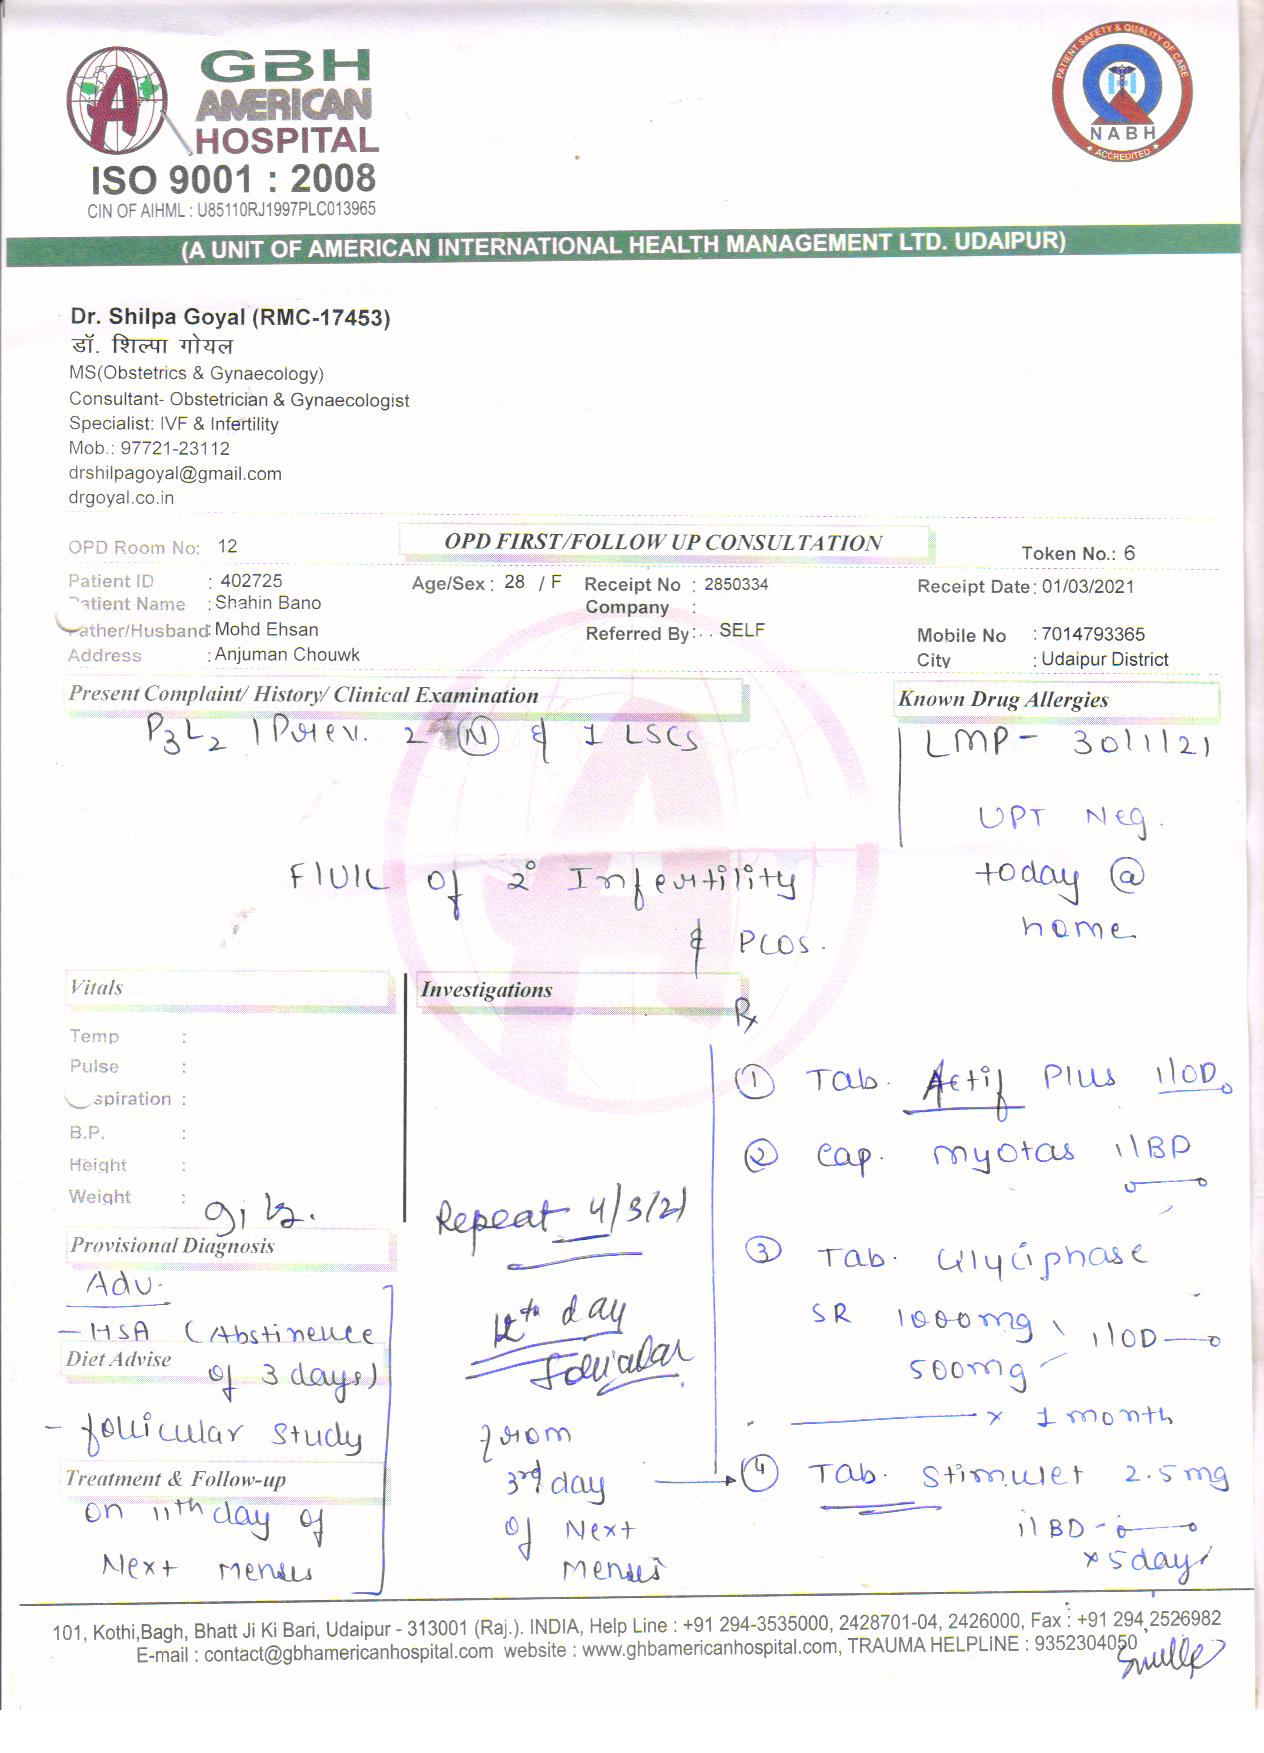 GBH
AMERICAN
HOSPITAL
ISO 9001 : 2008
CIN OF AIHML : U85110RJ1997PLC013965
PATIENT SAFETY & QUALITY OF CARE
NABH
ACCREDITED
(A UNIT OF AMERICAN INTERNATIONAL HEALTH MANAGEMENT LTD. UDAIPUR)
Dr. Shilpa Goyal (RMC-17453)
डॉ. शिल्पा गोयल
MS(Obstetrics & Gynaecology)
Consultant- Obstetrician & Gynaecologist
Specialist: IVF & Infertility
Mob.: 97721-23112
drshilpagoyal@gmail.com
drgoyal.co.in
OPD Room No: 12 OPD FIRST/FOLLOW UP CONSULTATION Token No.: 6
Patient ID : 402725 Age/Sex : 28 / F Receipt No : 2850334 Receipt Date : 01/03/2021
Patient Name : Shahin Bano Company :
Father/Husband : Mohd Ehsan Referred By : . . SELF Mobile No : 7014793365
Address : Anjuman Chouwk City : Udaipur District
Present Complaint/ History/ Clinical Examination
Known Drug Allergies
P3L2 / Prev. 2 (N) & 1 LSCS
LMP - 30/1/21
UPT Neg.
today @
home
F/U/C of 2° Infertility
& PCOS.
Vitals
Temp :
Pulse :
spiration :
B.P. :
Height :
Weight :
Provisional Diagnosis
Adv.
- HSA (Abstinence
Diet Advise
of 3 days)
- follicular study
Treatment & Follow-up
on 11th day of
Next menses
Investigations
Repeat 4/3/21
12th day
follicular
from
3rd day
of Next
menses
Rx
① Tab. Actif Plus 1/OD
② Cap. myotas 1/BD
③ Tab. Glyciphase
SR 1000mg
500mg 1/OD
x 1 month
④ Tab. Stimulet 2.5mg
1/BD
x 5 days
101, Kothi,Bagh, Bhatt Ji Ki Bari, Udaipur - 313001 (Raj.). INDIA, Help Line : +91 294-3535000, 2428701-04, 2426000, Fax : +91 294 2526982
E-mail : contact@gbhamericanhospital.com website : www.ghbamericanhospital.com, TRAUMA HELPLINE : 9352304050